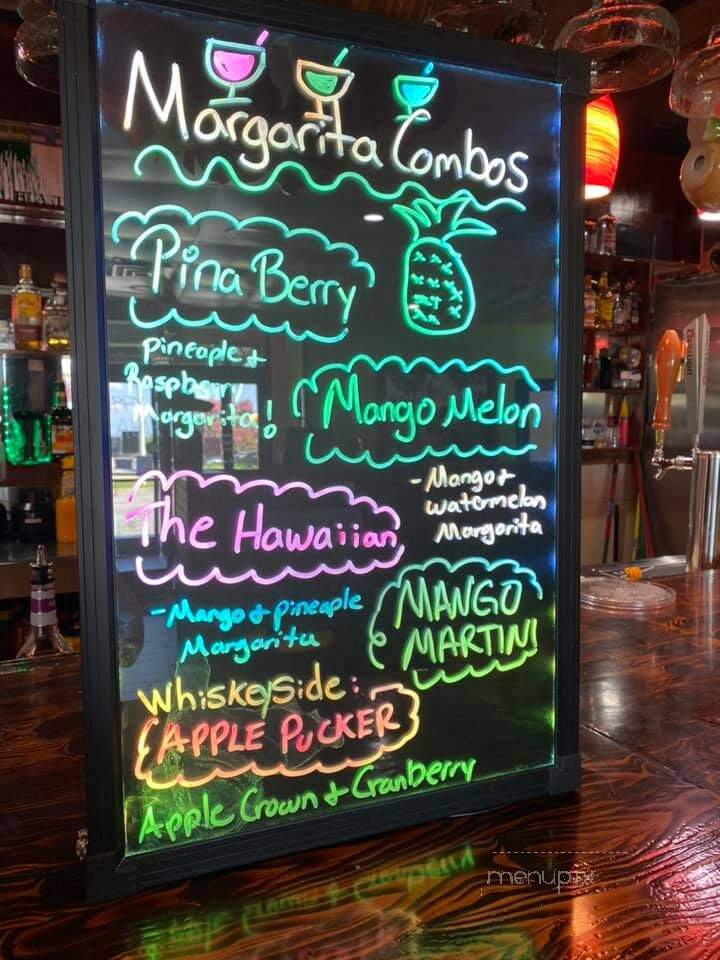 Margarita Combos
Pina Berry
Pineaple +
Raspberry
Margarita!
Mango Melon
- Mango +
watermelon
Margorita
The Hawaiian
- Mango + Pineaple
Margarita
MANGO
MARTINI
WhiskeySide:
APPLE PUCKER
Apple Crown + Cranberry
menupix